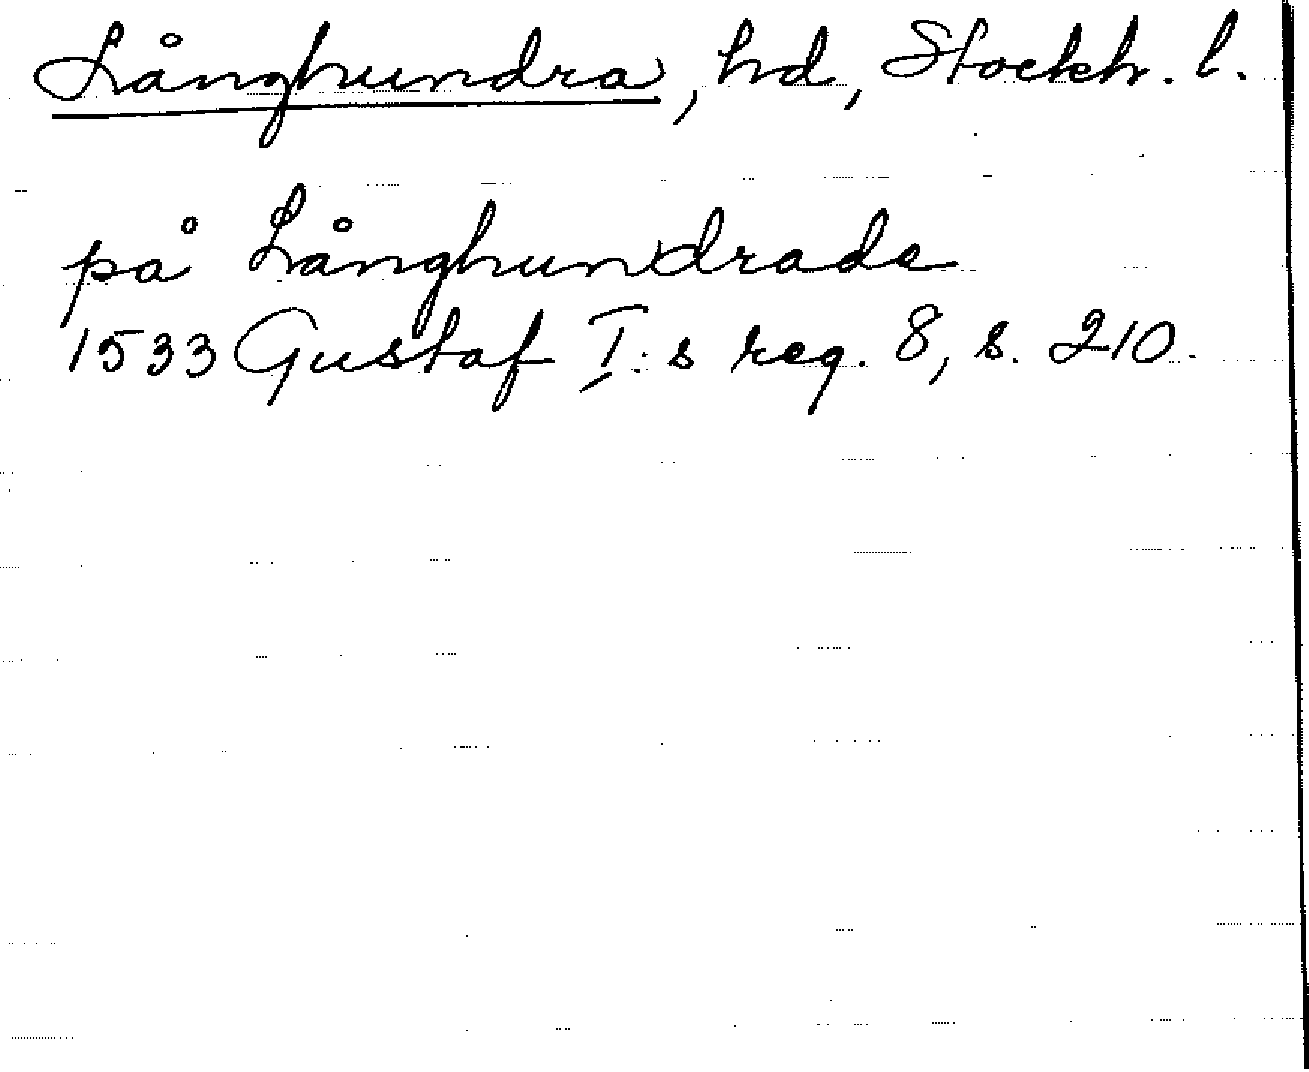 Långhundra, hd, Stockh. l.
på Långhundrade
1533 Gustaf I:s reg. 8, s. 210.